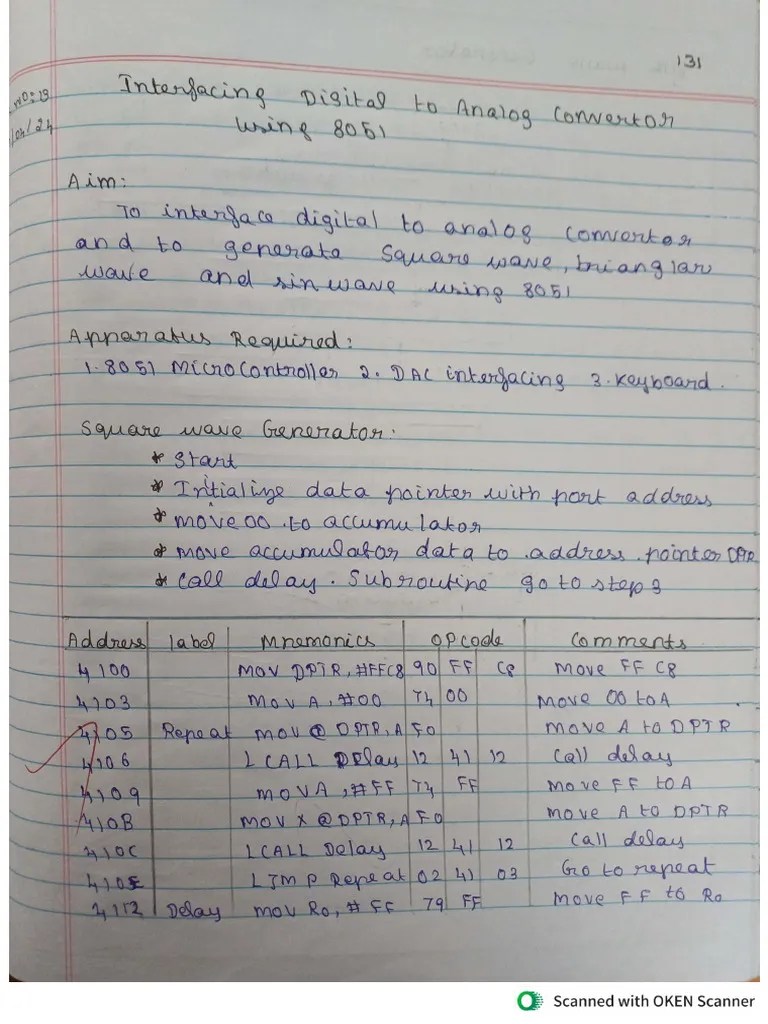 131
NO: 13
Interfacing Digital to Analog Convertor
/04/24
using 8051
Aim:
To interface digital to analog convertor
and to generata square wave, trianglar
wave and sin wave using 8051
Apparatus Required:
1. 8051 Microcontroller 2. DAC interfacing 3. Keyboard.
Square wave Generator.
* Start
* Initialize data pointer with port address
* move 00 to accumulator
* move accumulator data to address pointer DPTR
* call delay. Subroutine go to step 3
Address label Mnemonics OPcode Comments
4100 MOV DPTR, #FFC8 90 FF C8 Move FF C8
4103 MOV A, #00 74 00 Move 00 to A
4105 Repeat MOV @ DPTR, A F0 Move A to DPTR
4106 LCALL Delay 12 41 12 Call delay
4109 MOVA, #FF 74 FF Move FF to A
410B MOV X @DPTR, A F0 Move A to DPTR
410C LCALL Delay 12 41 12 Call delay
410E LJMP Repeat 02 41 03 Go to repeat
4112 Delay MOV R0, #FF 79 FF Move FF to R0
Scanned with OKEN Scanner